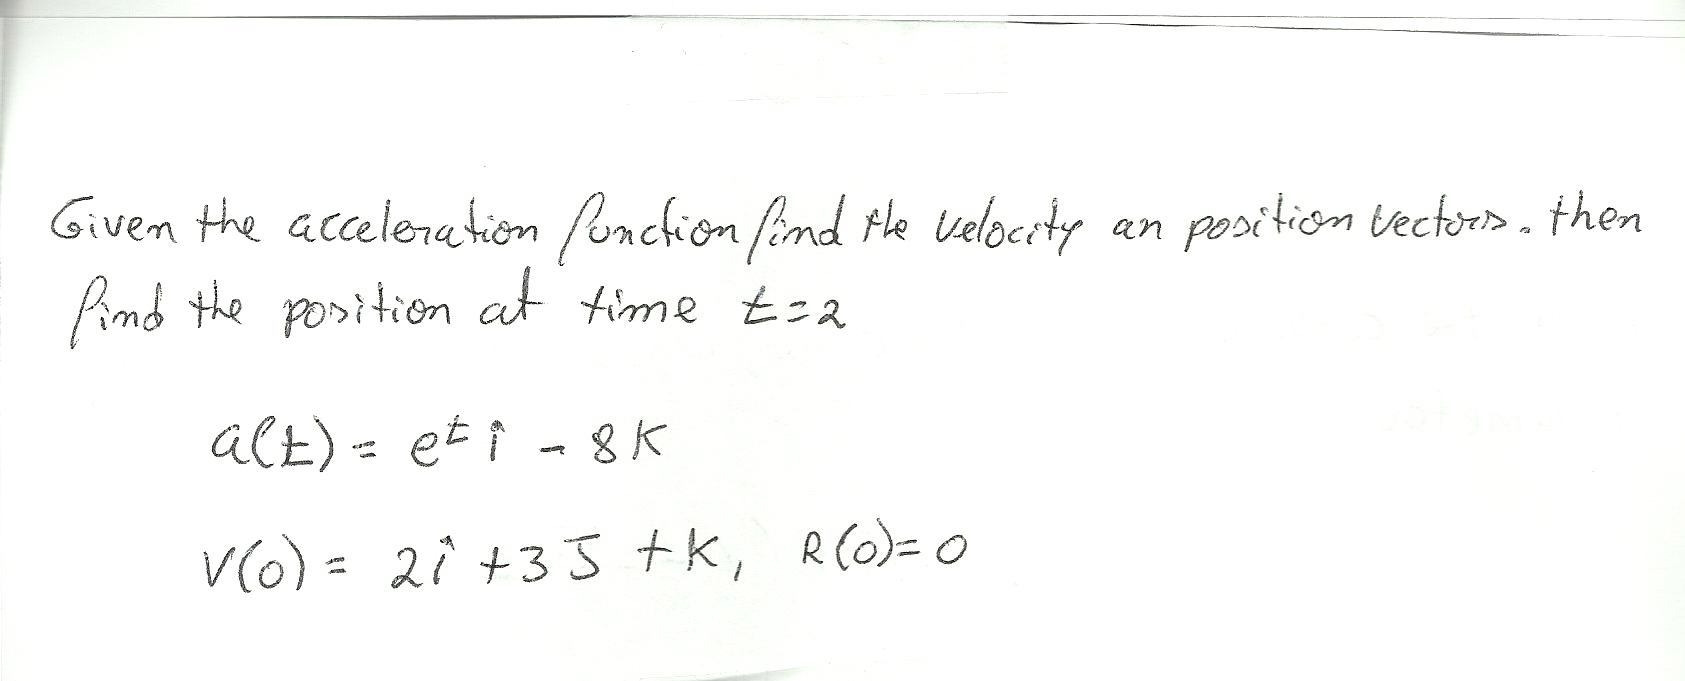 Given the acceleration function find the velocity an position vectors. then
find the position at time t=2
a(t) = e^t î - 8K
V(0) = 2î + 3J + K, R(0)=0